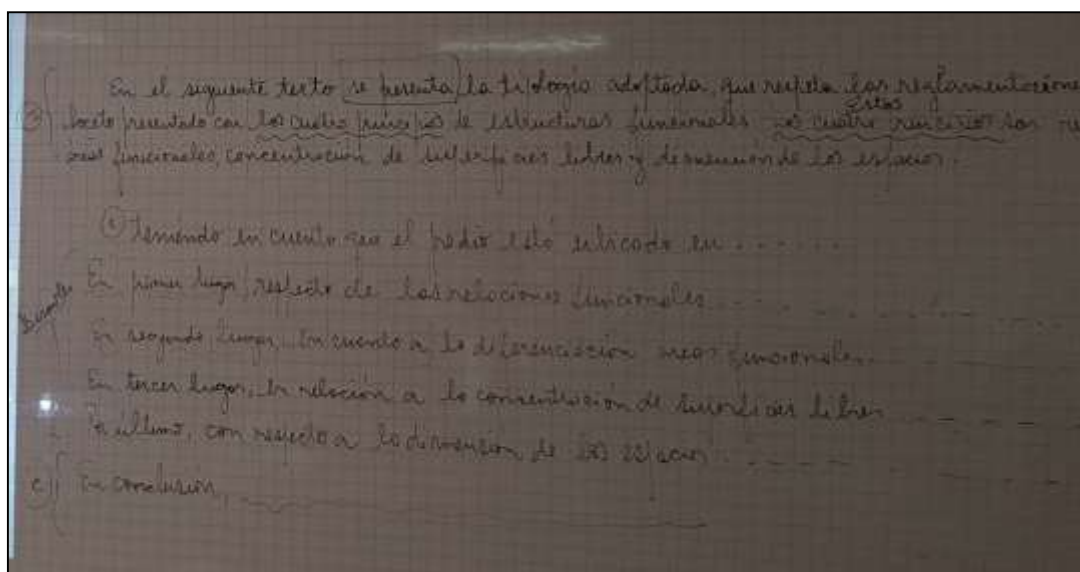 En el siguiente texto se presenta la tipología adoptada, que respeta las reglamentaciones
boceto presentado con los cuatro principios de estructuras funcionales. Los cuatro principios son
Estos
funcionales, concentración de superficies libres y dimensión de los espacios.
① teniendo en cuenta que el predio está ubicado en . . . . . .
En primer lugar, respecto de las relaciones funcionales . . . . . . . .
En segundo lugar, en cuanto a la diferenciación areas funcionales.
En tercer lugar, en relación a la concentración de superficies libres
Por último, con respecto a la dimensión de los espacios
c) En conclusión,